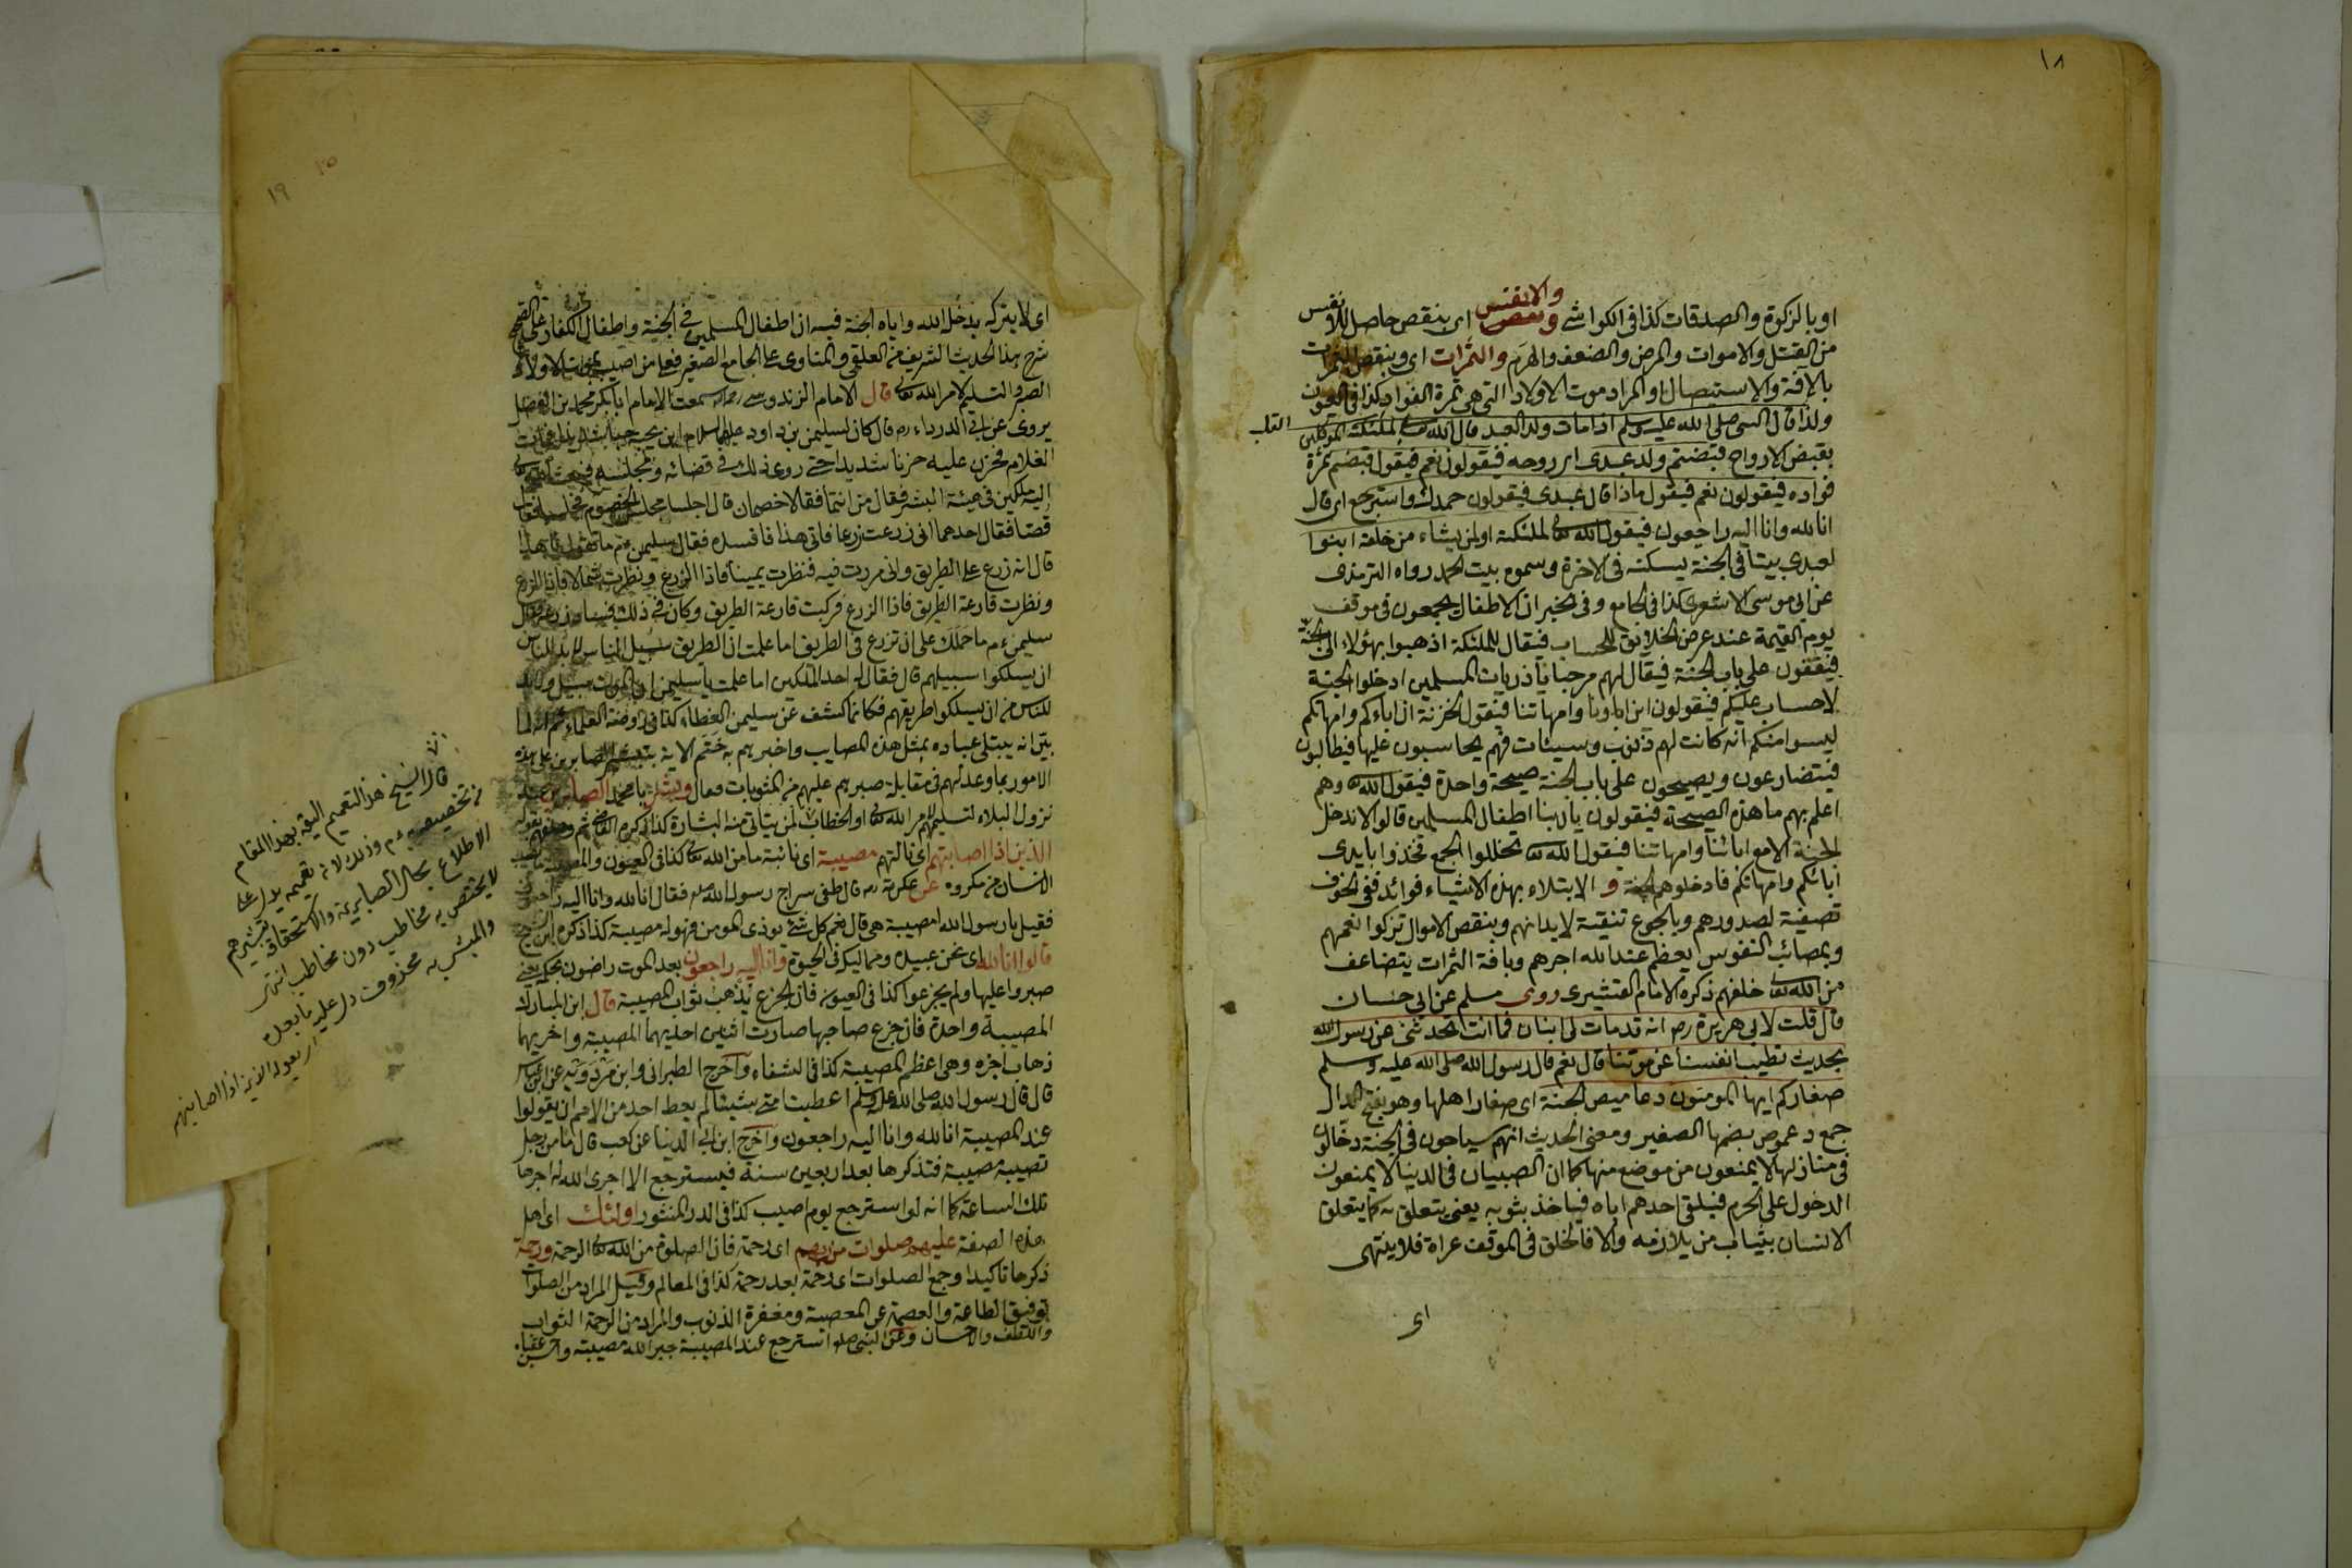 ١٨
او بالزكوة والصدقات كذا فى الكواشى والانفس ونقص اى بنقص حاصل للانفس
من القتل والاموات والمرض والضعف والهرم والثمرات اى وبنقص الثمرات
بالآفة والاستيصال او المراد موت الاولاد التى هى ثمرة الفؤاد كذا فى العيون
ولذا قال النبى صلى الله عليه وسلم اذا مات ولد العبد قال الله تعالى لملئكته الموكلين
القلب
بقبض الارواح قبضتم ولد عبدى اى روحه فيقولون نعم فيقول قبضتم ثمرة
فواده فيقولون نعم فيقول ماذا قال عبدى فيقولون حمدك واسترجع اى قال
انا لله وانا اليه راجعون فيقول الله تعالى لملئكته او لمن يشاء من خلقه ابنوا
لعبدى بيتا فى الجنة يسكنه فى الاخرة وسموه بيت الحمد رواه الترمذى
عن ابى موسى الاشعرى كذا فى الجامع وفى الخبر ان الاطفال يجمعون فى موقف
يوم القيمة عند عرض الخلائق للحساب فيقال للملئكة اذهبوا بهؤلاء الى الجنة
فيقفون على باب الجنة فيقال لهم مرحبا يا ذريات المسلمين ادخلوا الجنة
لا حساب عليكم فيقولون اين اباؤنا وامهاتنا فيقول الخزنة ان اباءكم وامهاتكم
ليسوا منكم انه كانت لهم ذنوب وسيئات فهم يحاسبون عليها فيطالبون
فيتضارعون ويصيحون على باب الجنة صيحة واحدة فيقول الله وهم
اعلم بهم ما هذه الصيحة فيقولون يا ربنا اطفال المسلمين قالوا لا ندخل
الجنة الا مع ابائنا وامهاتنا فيقول الله تعالى تخللوا الجمع فخذوا بايدى
ابائكم وامهاتكم فادخلوهم الجنة و الابتلاء بهذه الاشياء فوائد ففى الخوف
تصفية لصدورهم وبالجوع تنقية لابدانهم وبنقص الاموال تزكوا نعمهم
وبمصائب النفوس يعظم عند الله اجرهم وبافة الثمرات يتضاعف
من الله تعالى خلفهم ذكره الامام القشيرى روى مسلم عن ابى حسان
قال قلت لابى هريرة رم انه قد مات لى ابنان فما انت تحدثنى عن رسول الله
بحديث تطيب انفسنا عن موتنا قال نعم قال رسول الله صلى الله عليه وسلم
صغاركم ايها المومنون دعاميص الجنة اى صغار اهلها وهو بفتح الدال
جمع دعموص بضمها الصغير ومعنى الحديث انهم سياحون فى الجنة دخالون
فى منازلها لا يمنعون من موضع منها كما ان الصبيان فى الدنيا لا يمنعون
الدخول على الحرم فيلقى احدهم اباه فياخذ بثوبه يعنى يتعلق به كما يتعلق
الانسان بثياب من يلازمه والا فالخلق فى الموقف عراة فلا ينتهى
اى
١٩
اى لا يتركه يدخل الله واياه الجنة فيه ان اطفال المسلمين فى الجنة واطفال الكفار
شرح هذا الحديث الشريف من العلقمى والمناوى على الجامع الصغير فعلى من اصيب بموت الاولاد
الصبر والتسليم لامر الله تعالى قال الامام الزندوسى رحمه سمعت الامام ابا بكر محمد بن الفضل
يروى عن ابى الدرداء رم قال كان لسليمن بن داود عليهما السلام ابن يحبه حبا شديدا فمات
الغلام فحزن عليه حزنا شديدا حتى روى ذلك فى قضائه ومجلسه فبعث الله تعالى
اليه ملكين فى هيئة البشر فقال من انتما فقالا خصمان قال اجلسا مجلس الخصوم فجلسا
قصتا فقال احدهما انى زرعت زرعا فاتى هذا فافسده فقال سليمن عم ما تقول يا هذا
قال انه زرع على الطريق وانى مررت فيه فنظرت يمينا فاذا الزرع ونظرت شمالا فاذا الزرع
ونظرت قارعة الطريق فاذا الزرع فركبت قارعة الطريق وكان فى ذلك فساد زرعه فقال
سليمن عم ما حملك على ان تزرع فى الطريق اما علمت ان الطريق سبيل الناس لا بد للناس
ان يسلكوا سبيلهم قال فقال له احد الملكين اما علمت يا سليمن ان الموت سبيل ولا بد
للناس من ان يسلكوا طريقهم فكانما كشف عن سليمن الغطاء كذا فى روضة العلماء ثم انه لما
بين انه يبتلى عباده بمثل هذه المصايب واخبرهم به ختم الاية الصابرين على هذه
الامور بما وعد لهم فى مقابلة صبرهم عليهم من المثوبات فقال وبشر يا محمد الصابرين عند
نزول البلاء لتسليمهم لامر الله تعالى او الخطاب لمن يتاتى منه البشارة كذا ذكره القاضى ثم وصفهم بقوله
الذين اذا اصابتهم اى نالتهم مصيبة اى نائبة ما من الله تعالى كذا فى العيون
الانسان من مكروه عن عكرمة رم قال طفى سراج رسول الله صلعم فقال انا لله وانا اليه راجعون
فقيل يا رسول الله امصيبة هى قال نعم كل شئ يوذى المومن فهو له مصيبة كذا ذكره ابن الشيخ
قالوا انا لله اى نحن عبيده ومماليكه فى الحيوة وانا اليه راجعون بعد الموت راضون بحكمه يعنى
صبروا عليها ولم يجزعوا كذا فى العيون فان الجزع يذهب ثواب المصيبة قال ابن المبارك
المصيبة واحدة فان جزع صاحبها صارت اثنين احديهما المصيبة واخريهما
ذهاب اجره وهى اعظم المصيبة كذا فى الشفاء واخرج الطبرانى وابن مردويه عن ابن عباس
قال قال رسول الله صلى الله عليه وسلم اعطيت امتى شيئا لم يعط احد من الامم ان يقولوا
عند المصيبة انا لله وانا اليه راجعون واخرج ابن ابى الدنيا عن كعب قال ما من رجل
تصيبه مصيبة فتذكرها بعد اربعين سنة فيسترجع الا اجرى الله له اجرها
تلك الساعة كما انه لو استرجع يوم اصيب كذا فى الدر المنثور اولئك اى اهل
هذه الصفة عليهم صلوات من ربهم اى رحمة فان الصلوة من الله تعالى الرحمة ورحمة
ذكرها تاكيدا وجمع الصلوات اى رحمة بعد رحمة كذا فى المعالم وقيل المراد من الصلوات
توفيق الطاعة والعصمة عن المعصية ومغفرة الذنوب والمراد من الرحمة الثواب
واللطف والاحسان وعن النبى صلعم استرجع عند المصيبة جبر الله مصيبته واحسن عقباه
قال الشيخ هذا التعميم اليق بهذا المقام
من تخصيصه عم وذلك لانه تعميمه يدل على
الاطلاع بحال الصابرين والاستحقاق تبشيرهم
لا يختص به مخاطب دون مخاطب انتهى
والمبشر به محذوف دل عليه ما بعده
اذا اصابتهم